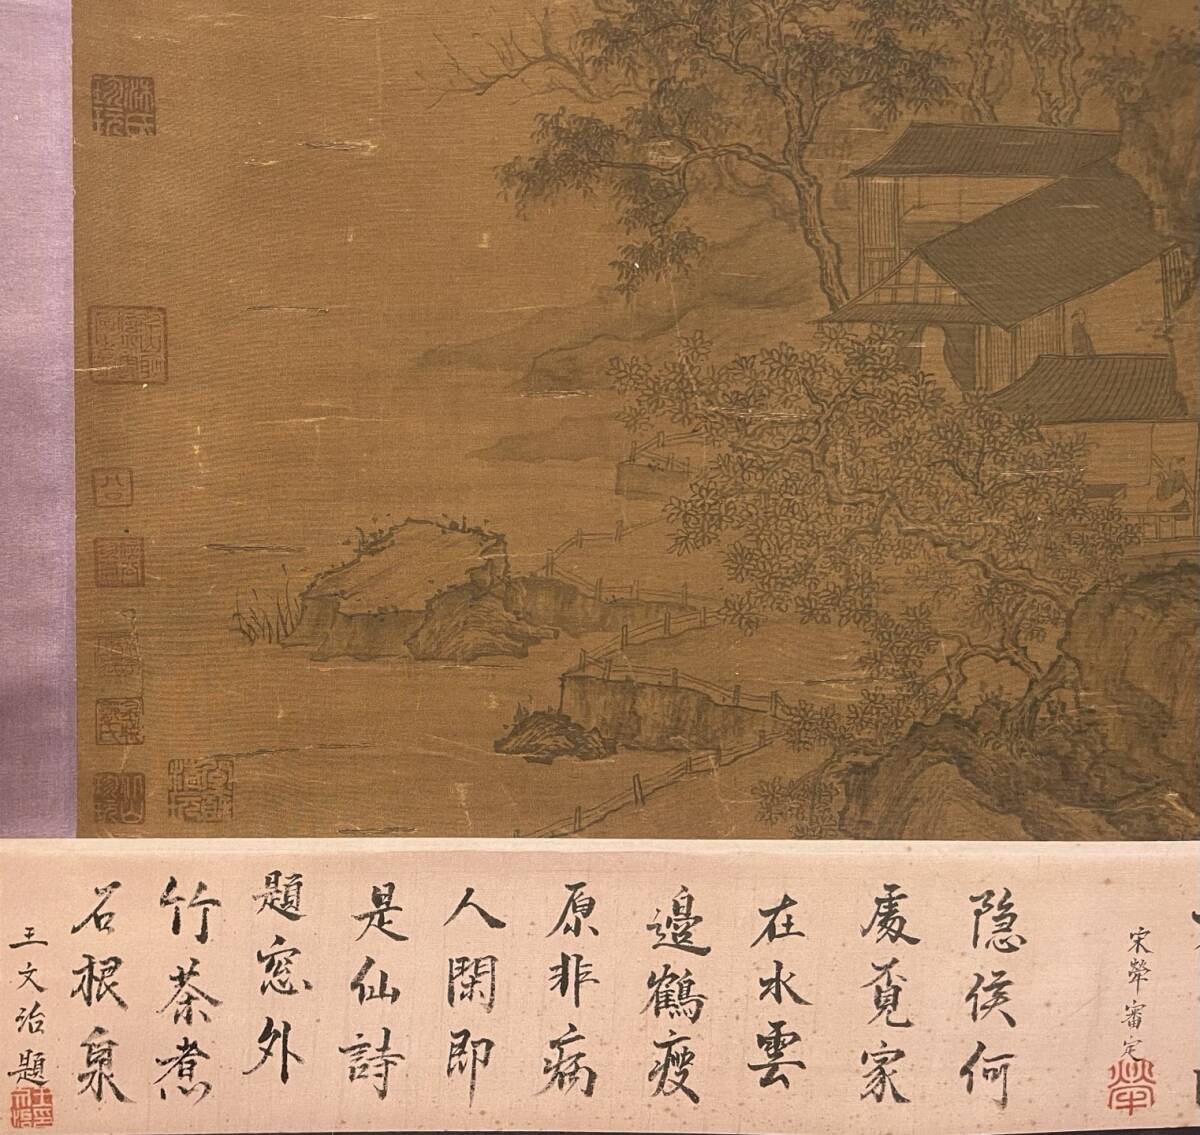 宋犖審定
隐侯何
處覔家
在水雲
邉鶴瘦
原非病
人閑即
是仙詩
題窓外
竹茶煮
石根泉
王文治題